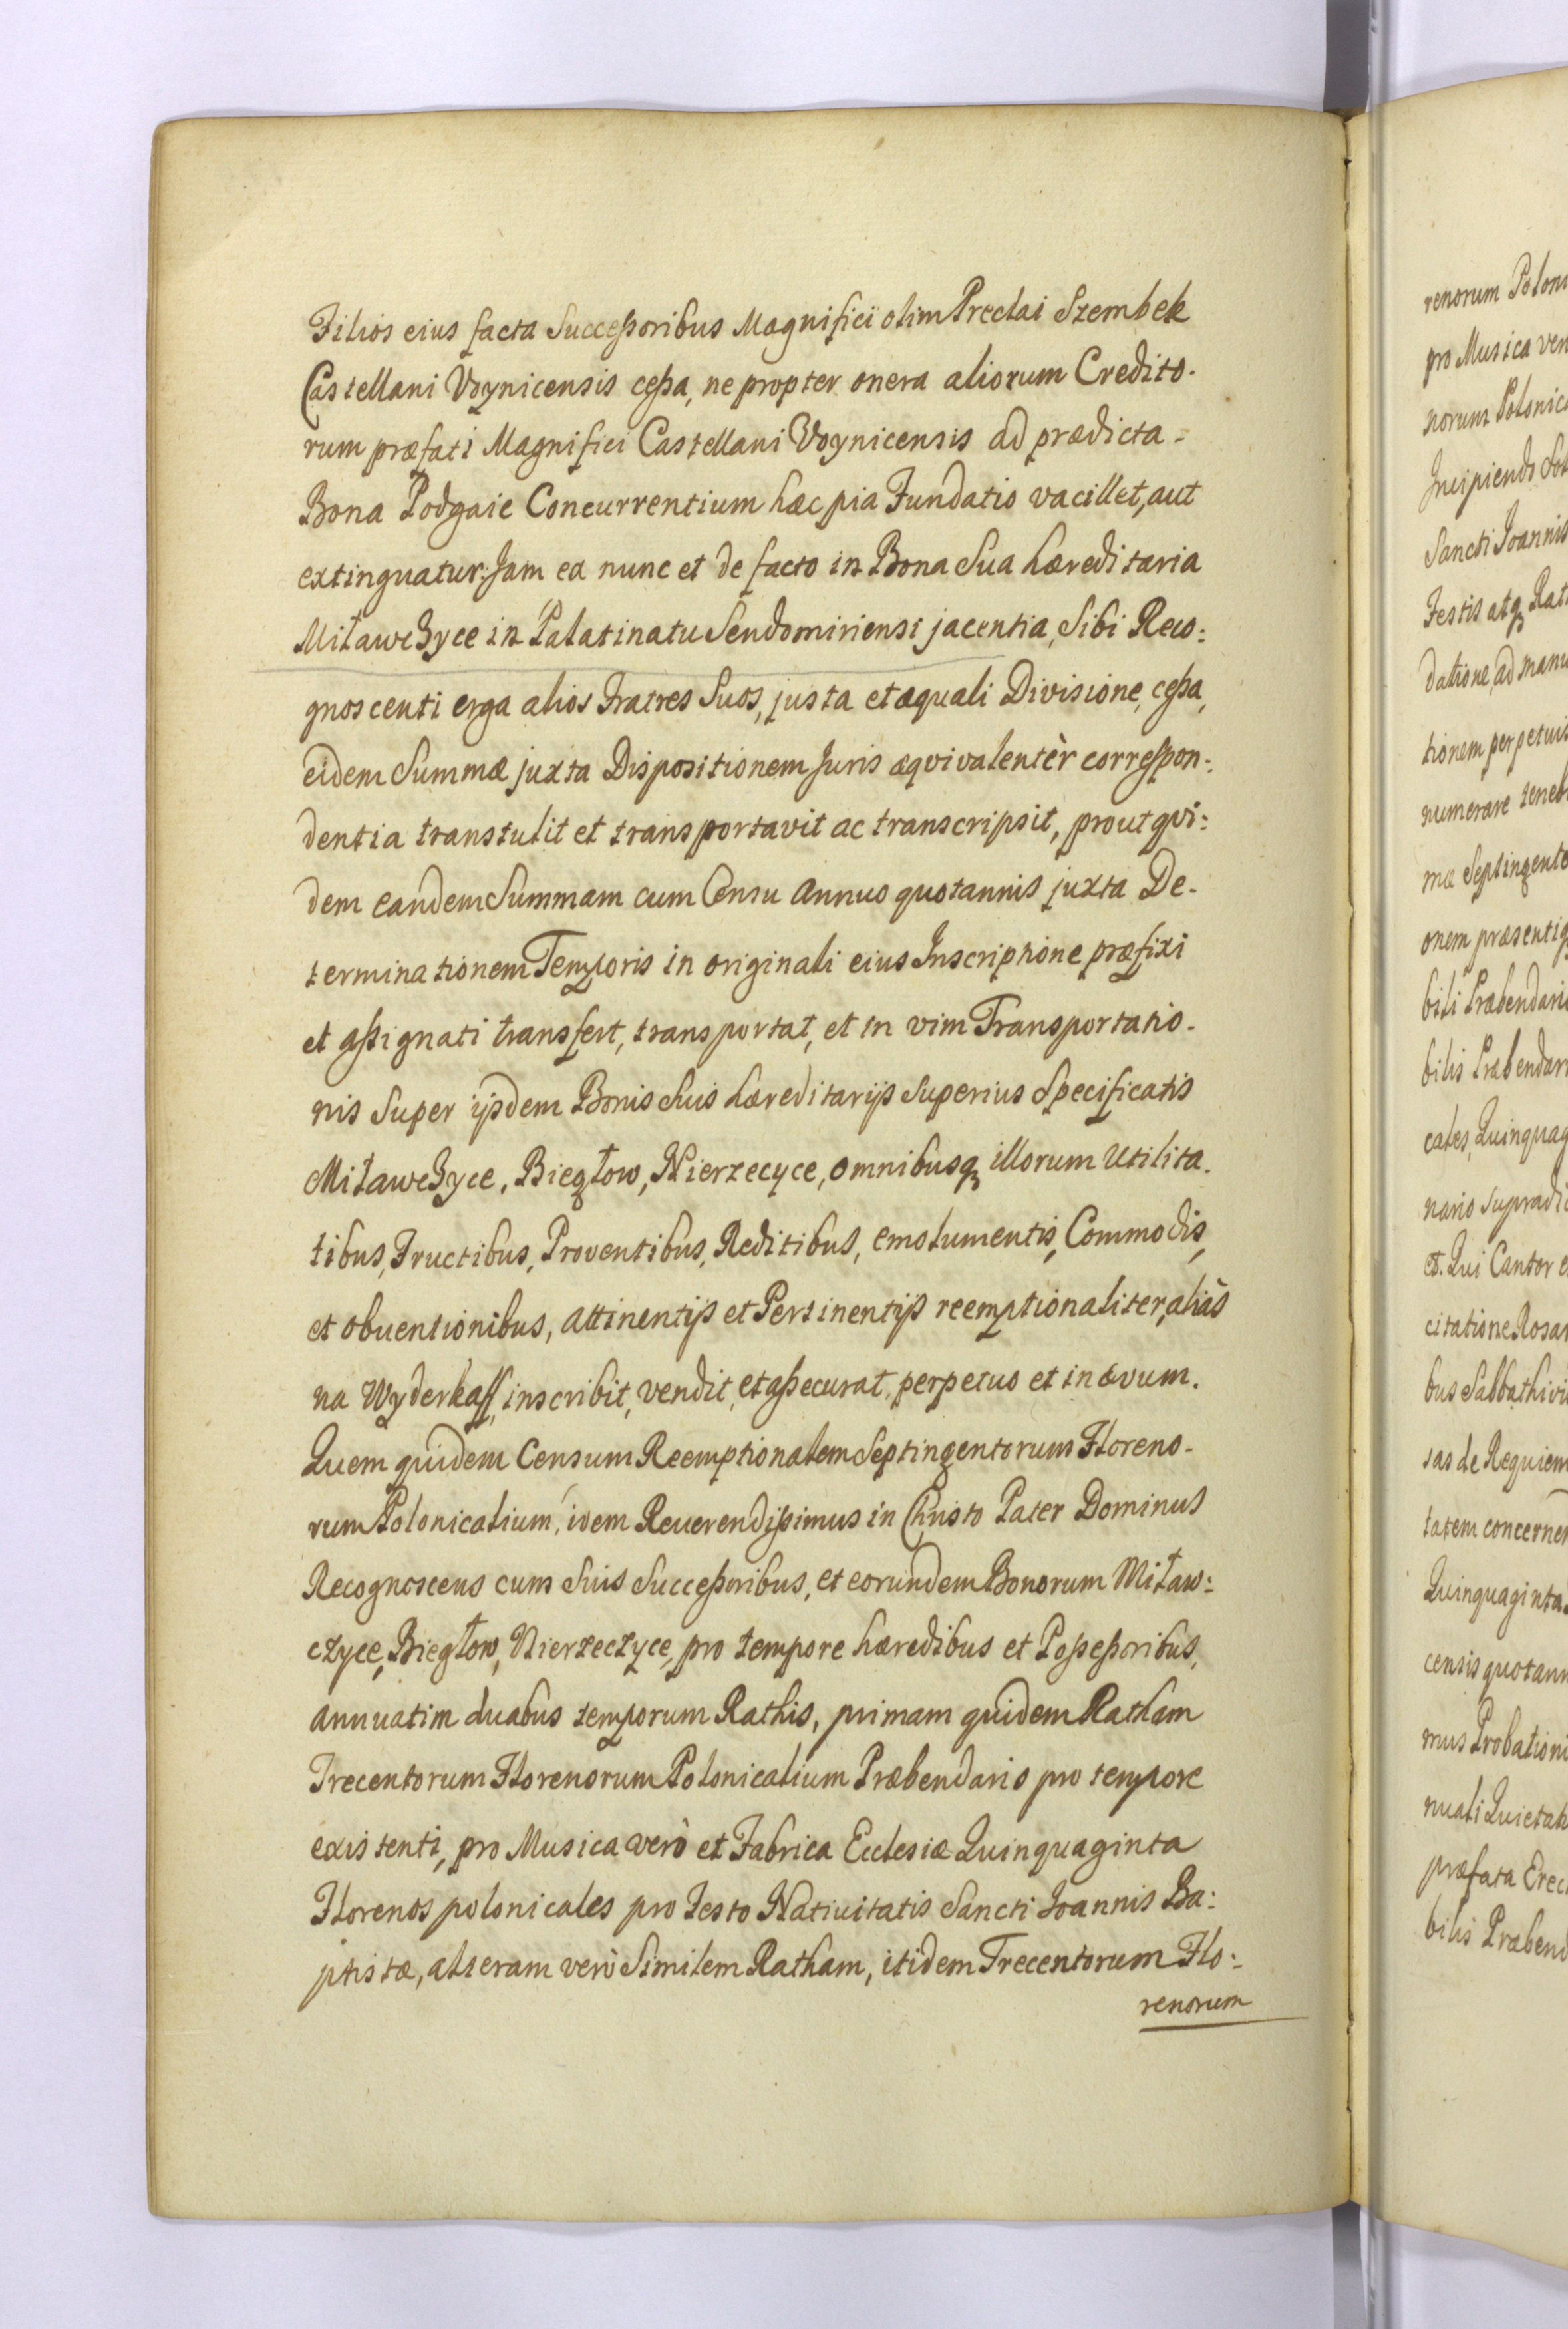 Filios eius facta Succeßoribus Magnifici olim Preclai Szembek
Castellani Voynicensis ceßa, ne propter onera aliorum Credito-
rum præfati Magnifici Castellani Voynicensis ad prædicta-
Bona Podgaie Concurrentium hæc pia Fundatio vacillet, aut
extinguatur: Jam ea nunc et de facto in Bona Sua hæreditaria
Miławczyce in Palatinatu Sendomiriensi jacentia, Sibi Reco:
gnoscenti erga alios Fratres Suos, justa et æquali Divisione, ceßa,
eidem Summæ juxta Dispositionem Juris æqvivalentèr correspon:
dentia transtulit et transportavit ac transcripsit, prout qvi:
dem eandem Summam cum Censu Annuo quotannis juxta De-
terminationem Temporis in originali eius Inscriptione præfixi
et aßignati transfert, transportat, et in vim Transportatio-
nis Super ijsdem Bonis Suis hæreditarijs Superius Specificatis
Miławczyce, Biegłow, Nierzecyce, omnibusq illorum Utilita-
tibus, Fructibus, Proventibus, Reditibus, emolumentis, Commodis,
et obuentionibus, attinentijs et Pertinentijs reemptionaliter, aliàs
na Wyderkaff, inscribit, vendit, et aßecurat, perpetuo et in ævum.
Quem quidem Censum Reemptionalem Septingentorum Floreno-
rum Polonicalium, idem Reuerendißimus in Christo Pater Dominus
Recognoscens cum Suis Succeßoribus, et eorundem Bonorum Miław:
czyce, Biegłow, Nierzeczyce, pro tempore hæredibus et Poßeßoribus,
annuatim duabus temporum Rathis, primam quidem Ratham
Trecentorum Florenorum Polonicalium Præbendario pro tempore
existenti, pro Musica verò et Fabrica Ecclesiæ Quinquaginta
Florenos polonicales pro Festo Natiuitatis Sancti Joannis Ba:
ptistæ, alteram verò Similem Ratham, itidem Trecentorum Flo:
renorum
renorum Poloni
pro Musica ven
norum Polonica
Incipiendo
Sancti Joannis
Festis atq Rat
datione, ad manu
tionem perpetuis
numerare teneb
mæ Septingento
onem præsenti
bili Præbendari
bilis Præbendar
cales, Quinquag
nario supradic
et. Qui Cantor e
citatione Rosar
bus Sabbathivi
sas de Requiem
tatem concernen
Quinquaginta
censis quotann
mus Probationi
nuali Quietati
præfata Erec
bilis Præbend